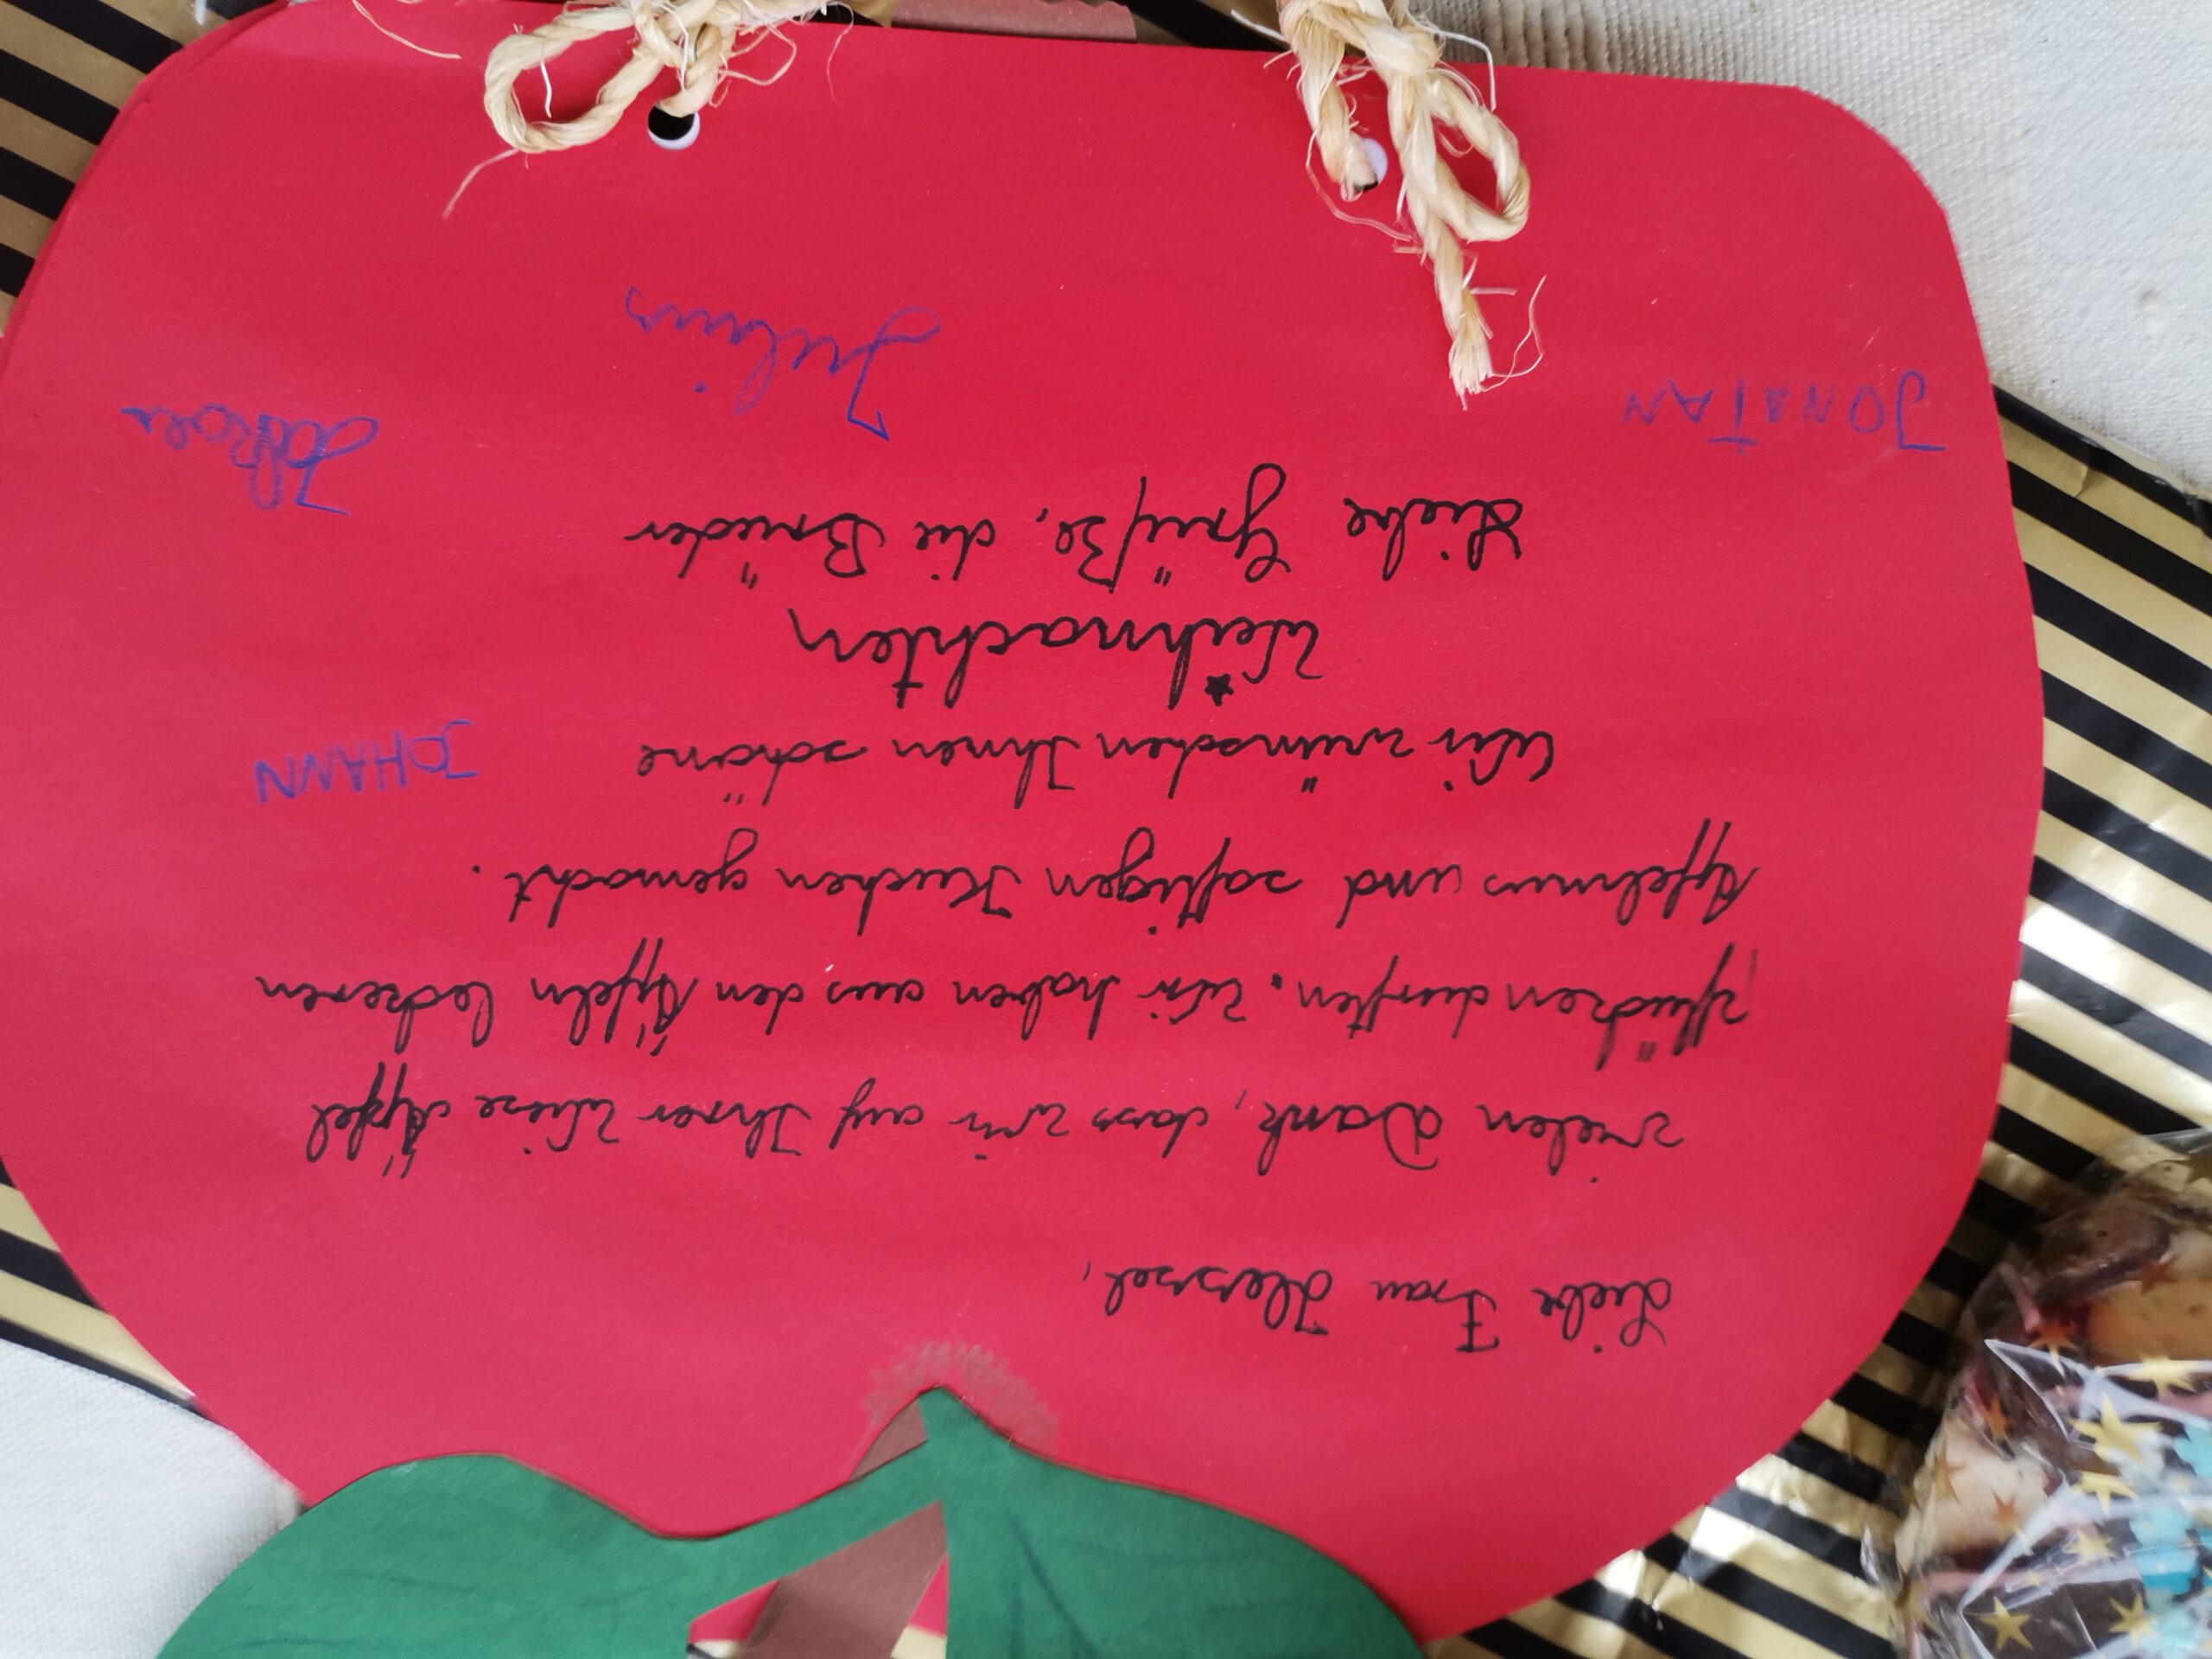 Liebe Frau Hessel,
vielen Dank, dass wir auf Ihrer Wiese Äpfel
pflücken durften. Wir haben aus den Äpfeln leckeren
Apfelmus und saftigen Kuchen gemacht.
Wir wünschen Ihnen schöne
JOHANN
Weihnachten
Liebe Grüße, die Brüder
JONATAN
Julius